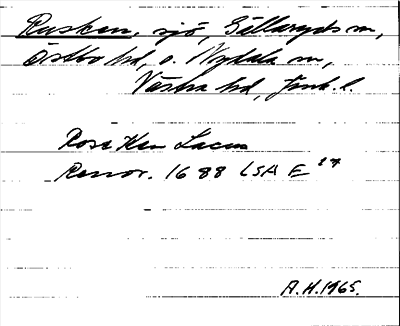 Rusken, sjö, Gällaryds sn,
Östbo hd, o. Nydala sn,
Västra hd, Jönk. l.
Rose Ken Lacus
Rennor. 1688 LSA E 27
A.H. 1965.